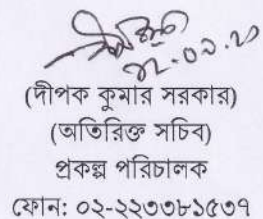 (দীপক কুমার সরকার)
(অতিরিক্ত সচিব)
প্রকল্প পরিচালক
ফোন: ০২-২২৩৩৮১৫৩৭